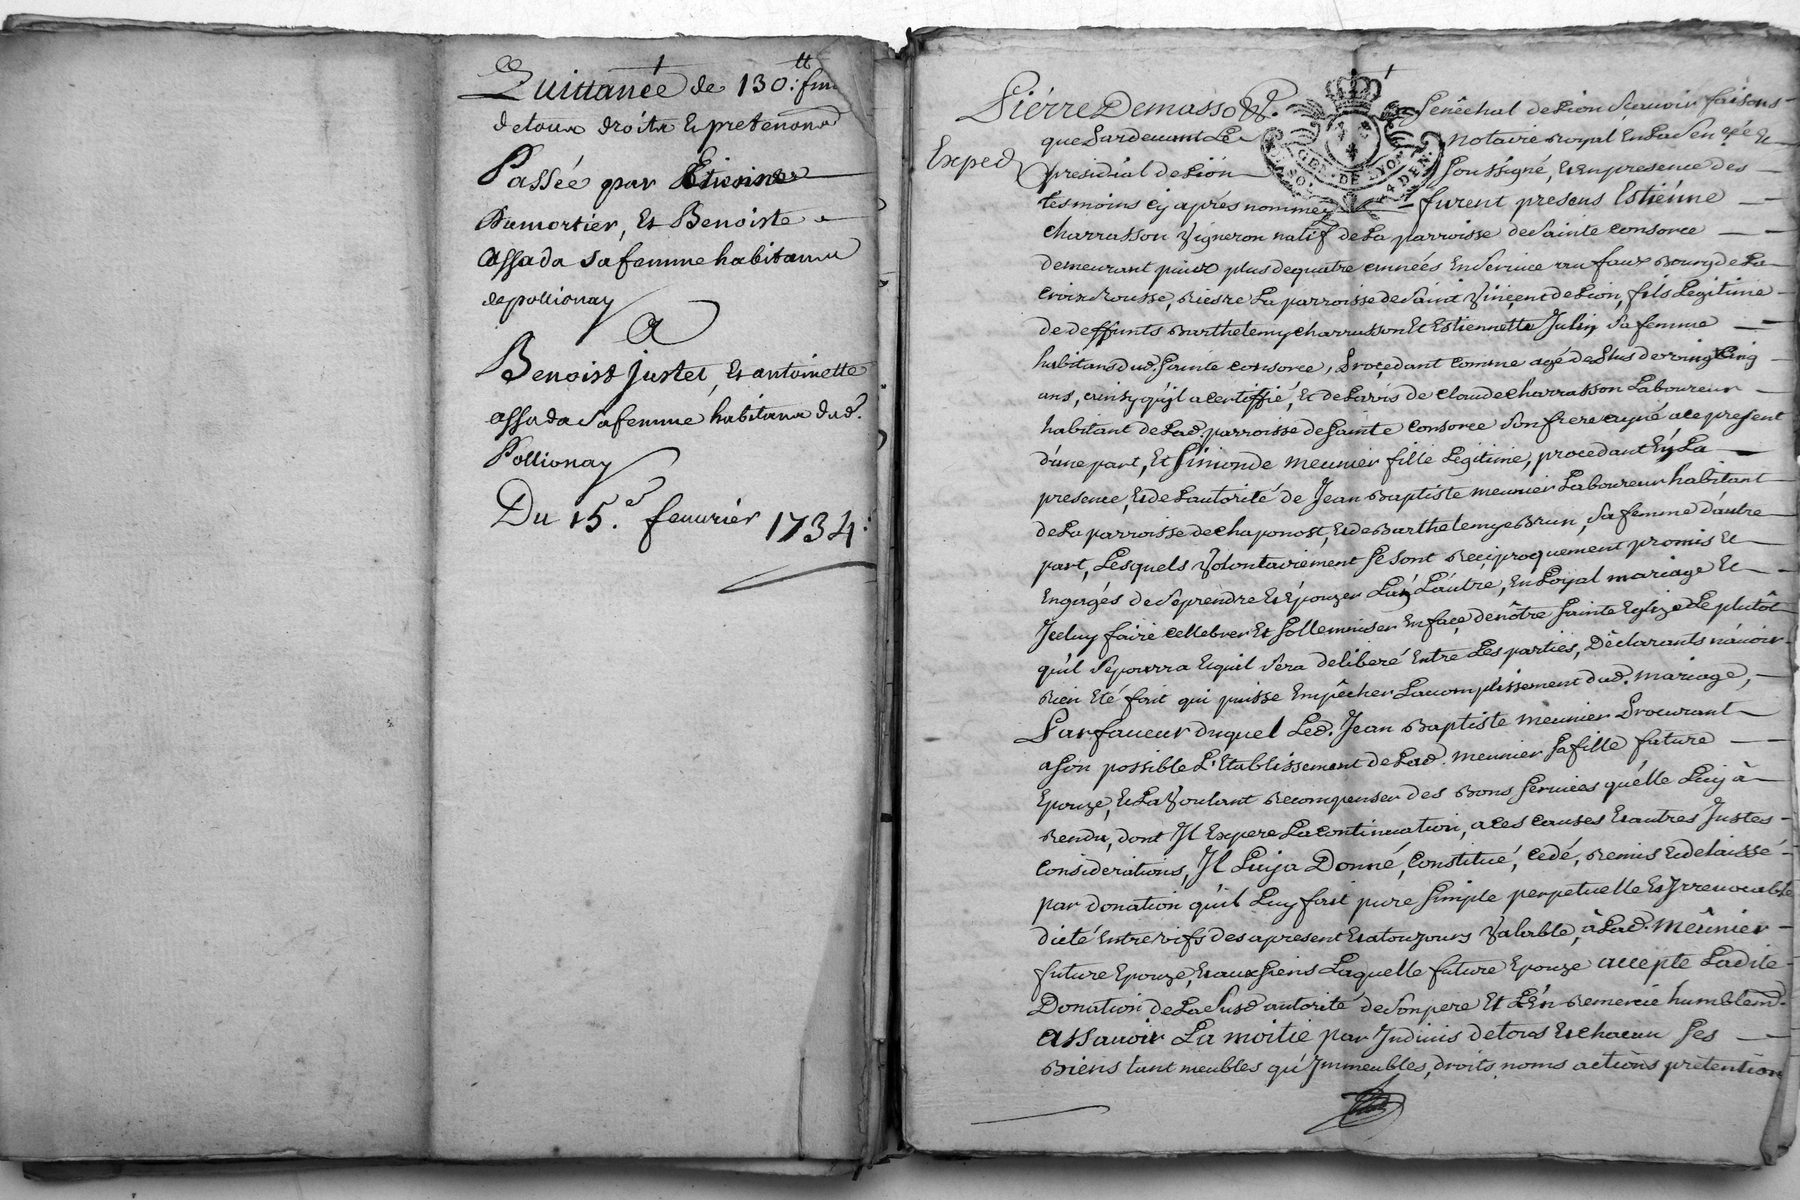 Quittance de 130.tt fin
de tous droits & pretentions
Passée par Etienne
Dumortier, Et Benoiste
assada sa femme habitans
de pollionay
A
Benoist Justet, Et antoinette
assada sa femme habitans dud.
Pollionay
Du 15.e feuurier 1734.
Pierre Demasso Senêchal de Lion scauoir faisons
que Pardeuant Le notaire royal En La Sen.cée &
Exped
presidial de Lion Soussigné, & En presence des
tesmoins cy aprés nommez furent presens Estiénne
charrasson vigneron natif de La parroisse de Sainte consorce
demeurant puis plus de quatre années En seruice au faux bourg de La
croix rousse, riere La parroisse de Saint vincent de Lion, fils Legitime
de deffunts Barthelemy charrasson Et Estiennette Julin sa femme
habitans dud. Sainte consorce, Procedant comme agé de Plus de vingt cinq
ans, ainsy qu'jl a certiffié, Et de L'avis de claude charrasson Laboureur
habitant de Lad. parroisse de Sainte consorce son frere ayné a ce present
d'une part, Et Simonde meunier fille Legitime, procedant En La
presence, & de L'autorité de Jean Baptiste meunier Laboureur habitant
de La parroisse de chaponost, & de Barthelemye Brun, sa femme d'autre
part, Lesquels volontairement se sont reciproquement promis Et
Engagés de se prendre & Epouzer L'un L'autre, En Loyal mariage Et
Jceluy faire cellebrer Et sollemniser En face de nôtre Sainte Eglize Le plutôt
qu'il se pourra & quil sera deliberé Entre Les parties, Déclarants n'auoir
rien Eté fait qui puisse Empêcher L'acomplissement dud. mariage,
Par faueur duquel Led. Jean Baptiste meunier Procurant
a son possible L'Etablissement de Lad. meunier sa fille future
Epouze, & La voulant recompenser des bons seruices qu'elle Luy à
rendu, dont Jl Espere La continuation, a ces causes & autres Justes
considerations, Jl Luy a Donné, constitué, cedé, remis & delaissé
par donation qu'il Luy fait pure simple perpetuelle & Jrreuocable
dicte Entre vifs des a present & a toujours valable, à Lad. meûnier
future Epouze, & aux siens Laquelle future Epouze accepte Ladite
Donation de La susd autorité de son pere Et L'En remercie humblem.t
assauoir La moitie par Jndiuis de tous & chacun ses
Biens tant meubles qu'Jmmeubles, droits, noms actions prétention